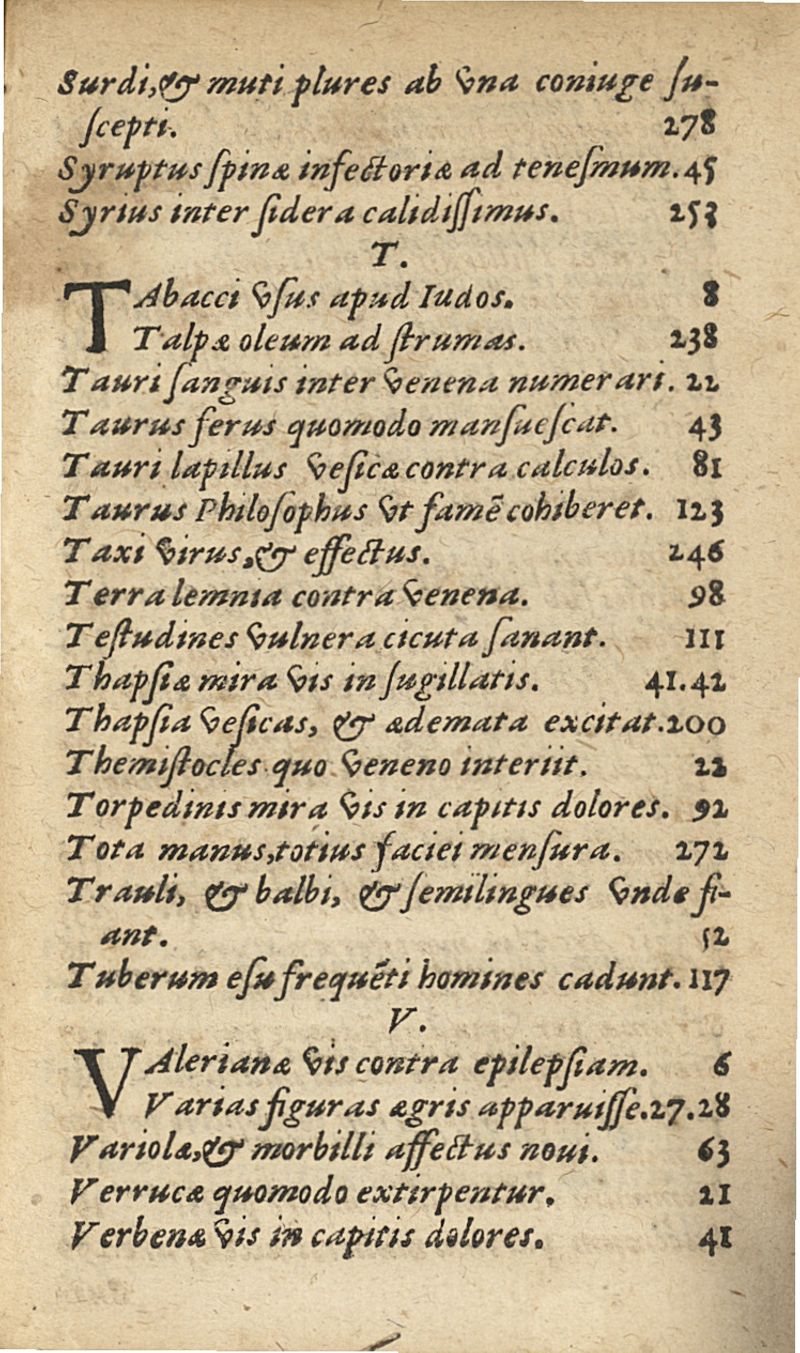 Surdi,& muti plures ab vna coniuge ſu-
ſcepti. 278
Syruptus ſpinæ infectoriæ ad teneſmum. 45
Syrius inter ſidera calidiſſimus. 253
T.
TAbacci vſus apud Iudos. 8
Talpæ oleum ad ſtrumas. 238
Tauri ſanguis inter venena numerari. 22
Taurus ferus quomodo manſueſcat. 43
Tauri lapillus veſicæ contra calculos. 81
Taurus Philoſophus vt famē cohiberet. 123
Taxi virus,& effectus. 246
Terra lemnia contra venena. 98
Teſtudines vulnera cicuta ſanant. 111
Thapſiæ mira vis in ſugillatis. 41.42
Thapſia veſicas, & ædemata excitat. 200
Themiſtocles quo veneno interiit. 22
Torpedinis mira vis in capitis dolores. 92
Tota manus,totius faciei menſura. 272
Trauli, & balbi, & ſemilingues vnde fi-
ant. 52
Tuberum eſu frequēti homines cadunt. 117
V.
VAlerianæ vis contra epilepſiam. 6
Varias figuras ægris apparuiſſe. 27.28
Variolæ,& morbilli affectus noui. 63
Verrucæ quomodo extirpentur. 21
Verbenæ vis in capitis dolores. 41